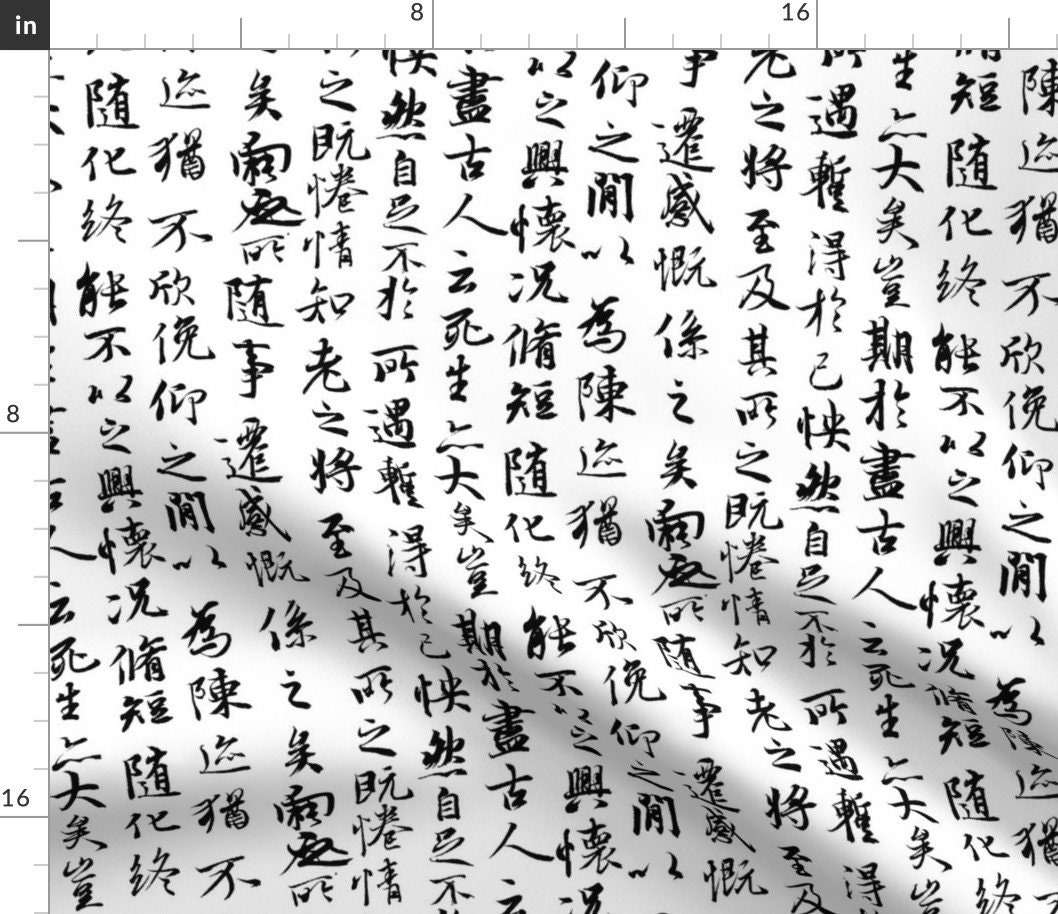 in
8
16
8
16
陳迹猶不欣俛仰之閒以為陳迹猶
脩短随化終能不以之興懷况脩短随化終
生亦大矣豈期於盡古人云死生亦大矣豈
所遇蹔得於己怏然自足不於所遇蹔得
老之將至及其所之既惓情知老之將至及
事遷感慨係之矣向之所随事遷感慨
仰之閒以為陳迹猶不欣俛仰之閒以
以之興懷况脩短随化終能不以之興懷况
盡古人云死生亦大矣豈期於盡古人云
怏然自足不於所遇蹔得於己怏然自足不於
之既惓情知老之將至及其所之既惓情
矣向之所随事遷感慨係之矣向之所
迹猶不欣俛仰之閒以為陳迹猶不
随化終能不以之興懷况脩短随化終
云死生亦大矣豈